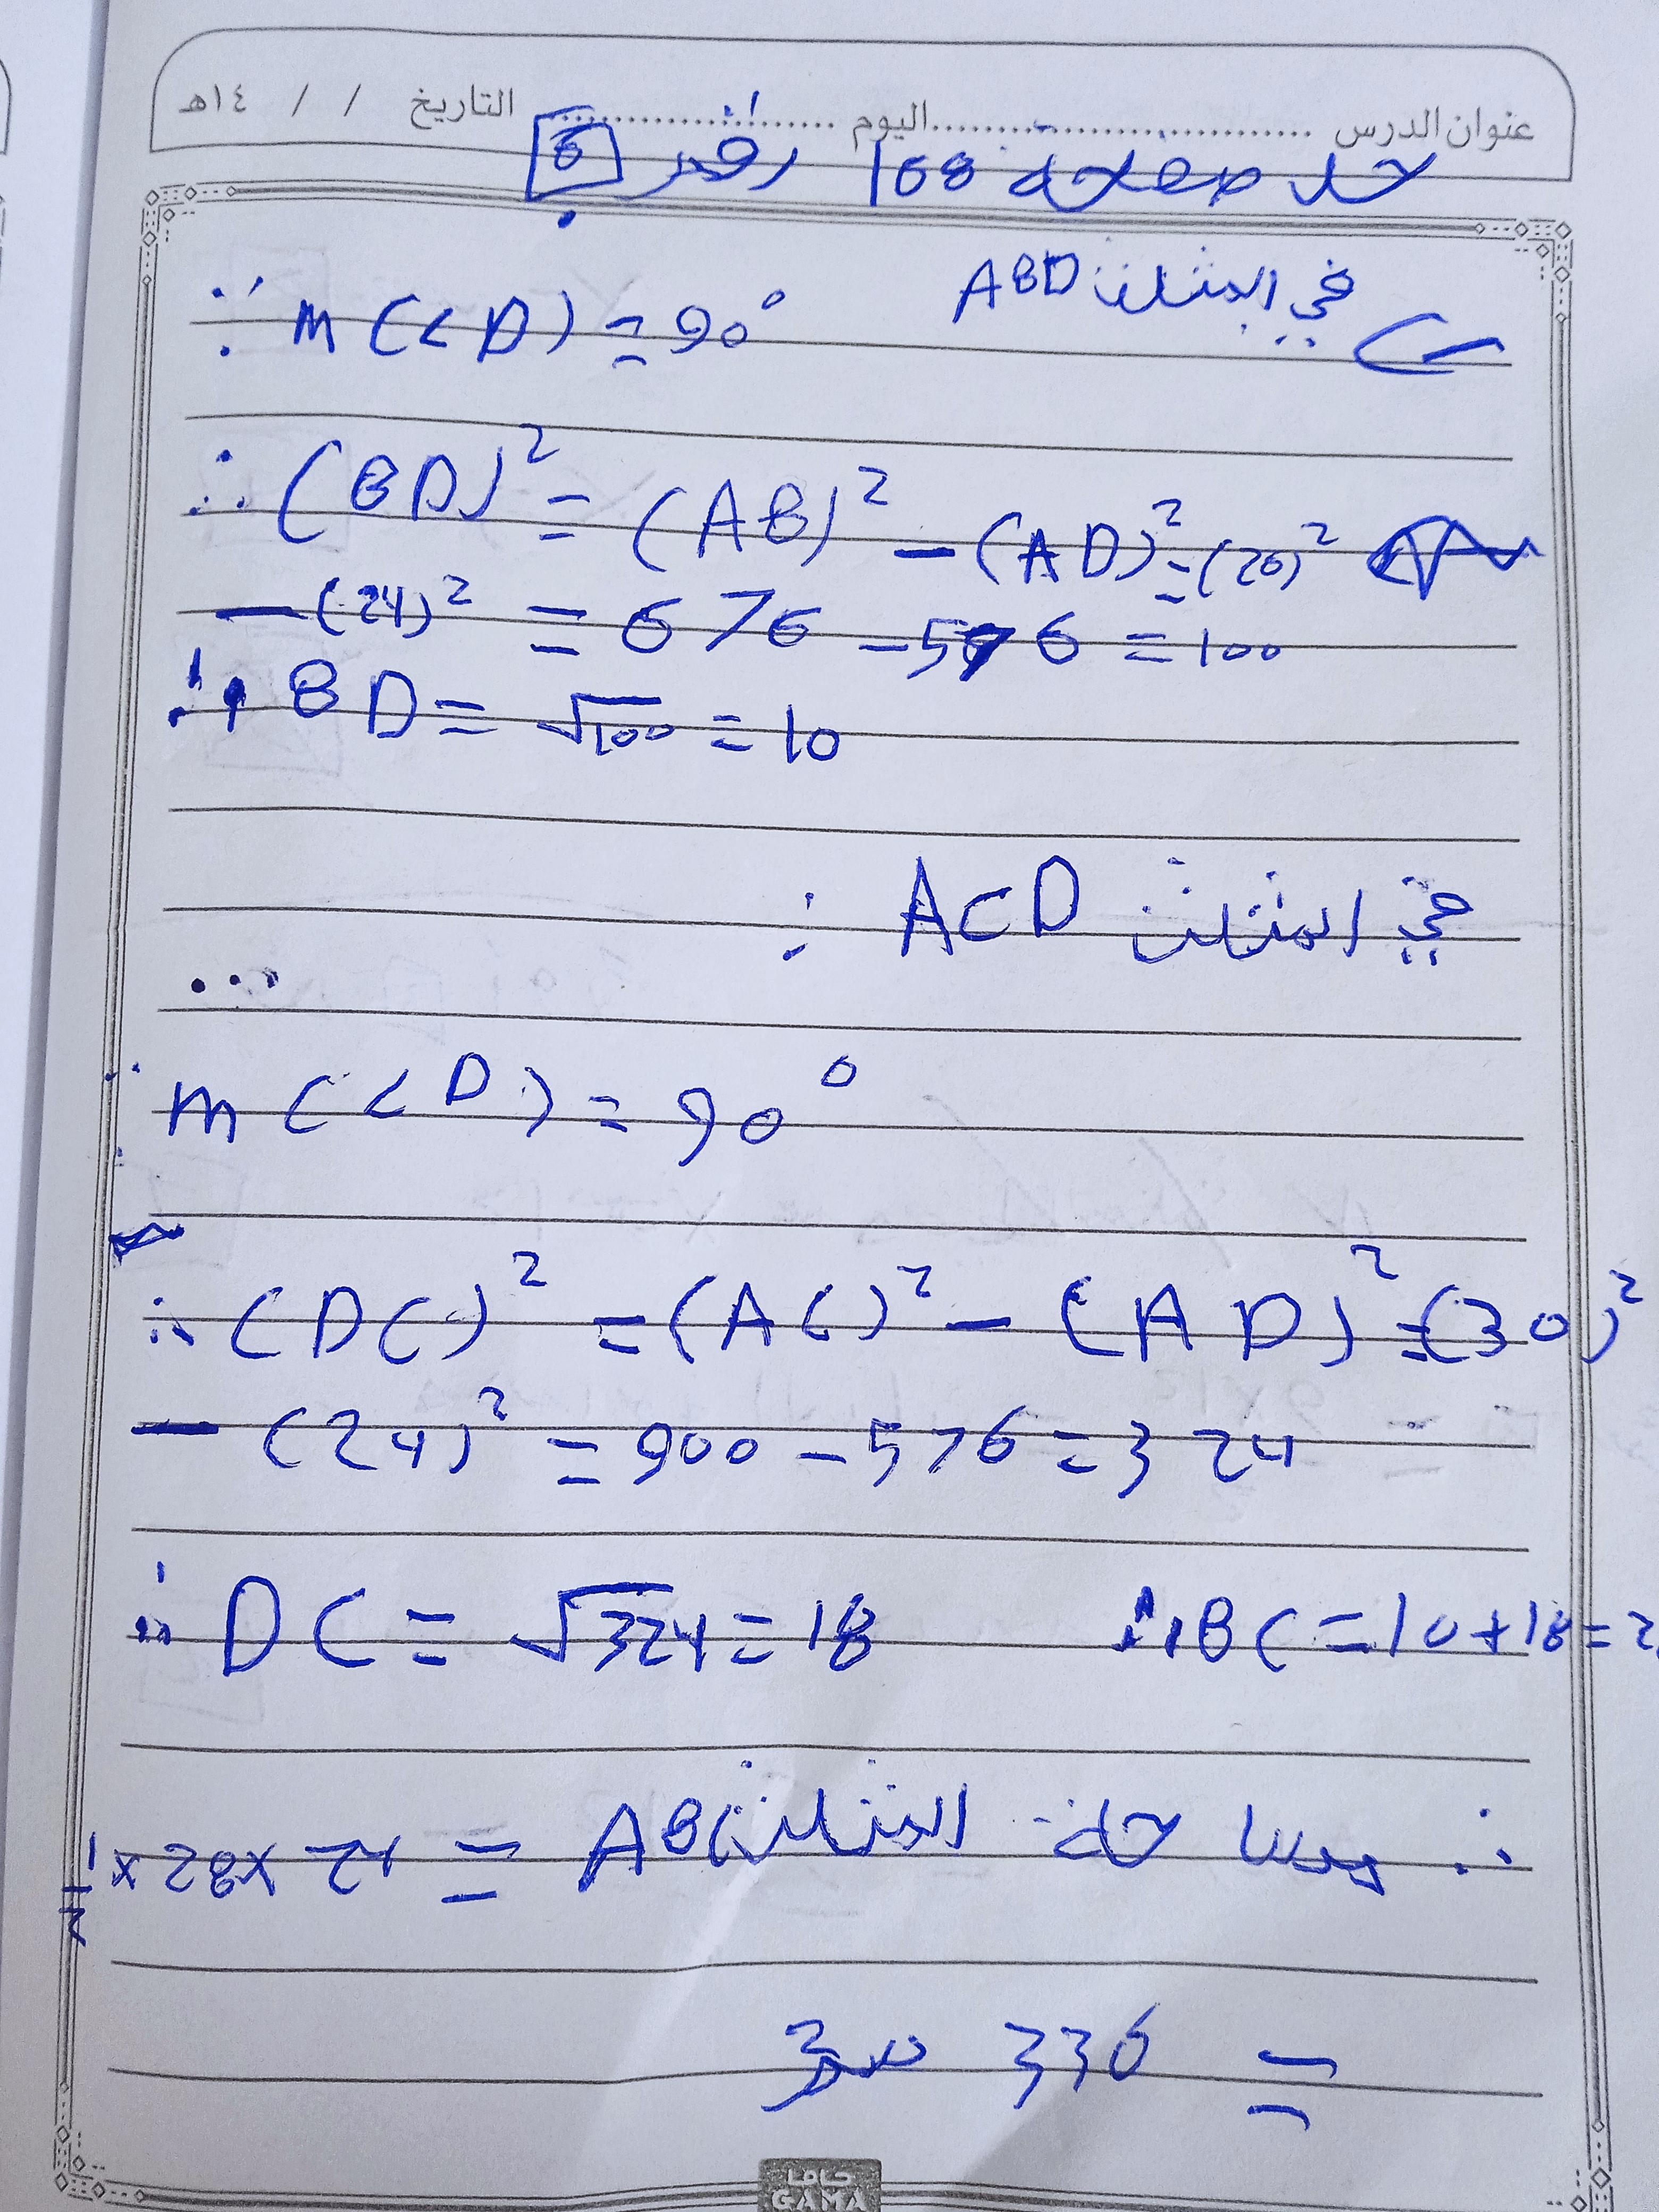 عنوان الدرس ........................ اليوم ........................ التاريخ / / ١٤هـ
حل صفحة 168 رقم 6
في المثلث ABD
∵ m(<D) = 90°
∴ (BD)² = (AB)² - (AD)² = (26)²
- (24)² = 676 - 576 = 100
∴ BD = √100 = 10
في المثلث ACD :
∵ m(<D) = 90°
∴ (DC)² = (AC)² - (AD)² = (30)²
- (24)² = 900 - 576 = 324
∴ DC = √324 = 18 ∴ BC = 10 + 18 = 2
∴ مساحة المثلث ABC = 24 × 28 × 1/2
= 336 سم²
جاما
GAMA